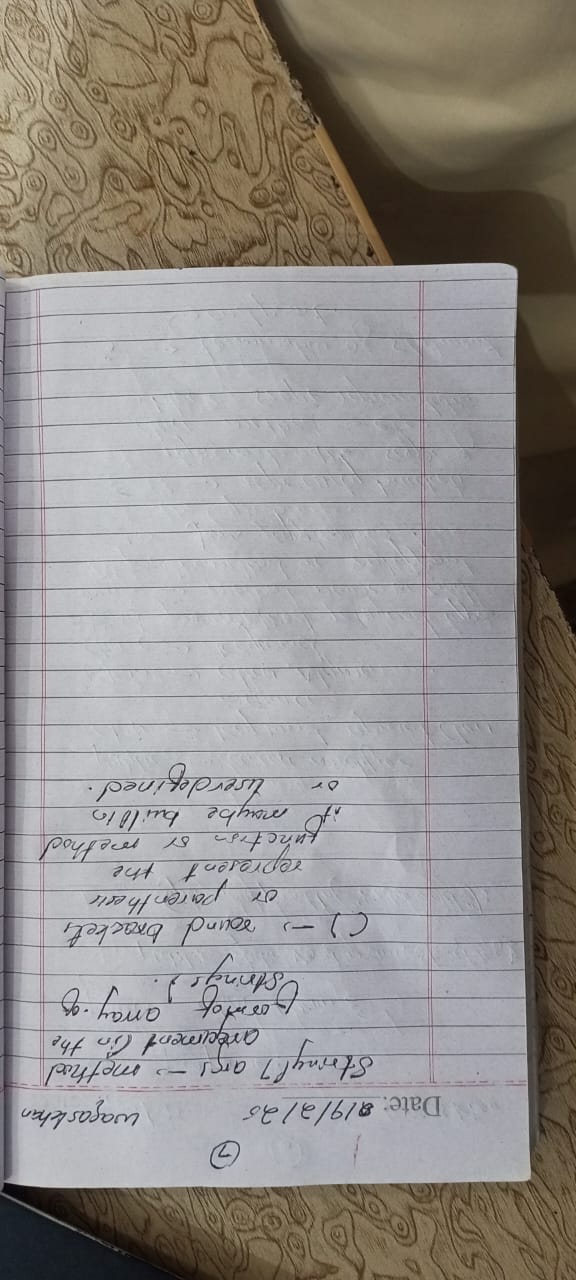 7
Date: 19/2/25 waqaskhan
String[] args → method
argument (in the
form of array of
strings).
() → round brackets
or parenthesis
represent the
function or method
it maybe build in
or userdefined.